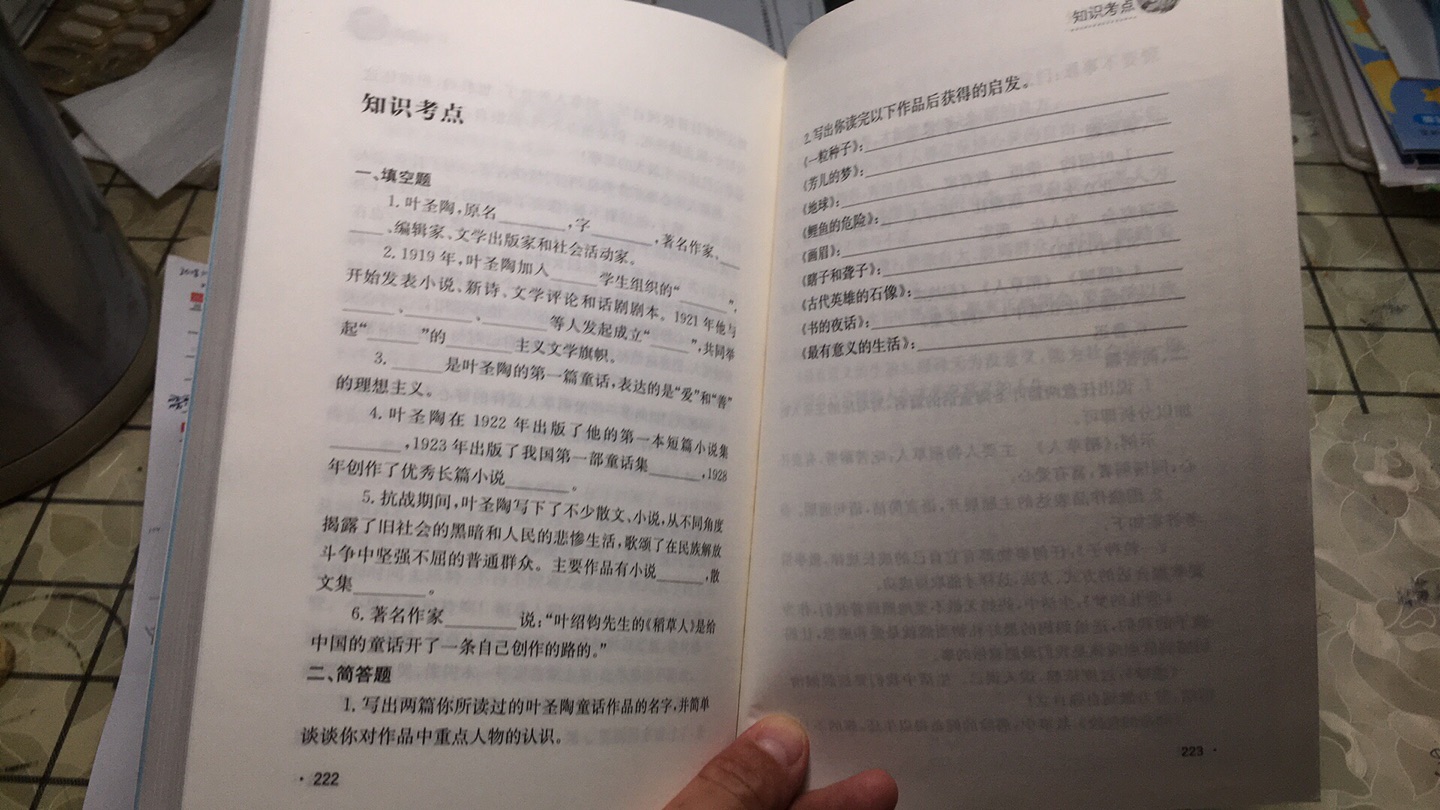 知识考点
一、填空题
1. 叶圣陶,原名________,字________,著名作家、__
____、编辑家、文学出版家和社会活动家。
2. 1919 年,叶圣陶加入______学生组织的“______”,
开始发表小说、新诗、文学评论和话剧剧本。1921 年他与
______、______、________等人发起成立“______”,共同举
起“______”的________主义文学旗帜。
3. ______是叶圣陶的第一篇童话,表达的是“爱”和“善”
的理想主义。
4. 叶圣陶在 1922 年出版了他的第一本短篇小说集
________,1923 年出版了我国第一部童话集______,1928
年创作了优秀长篇小说________。
5. 抗战期间,叶圣陶写下了不少散文、小说,从不同角度
揭露了旧社会的黑暗和人民的悲惨生活,歌颂了在民族解放
斗争中坚强不屈的普通群众。主要作品有小说______,散
文集________。
6. 著名作家________说:“叶绍钧先生的《稻草人》是给
中国的童话开了一条自己创作的路的。”
二、简答题
1. 写出两篇你所读过的叶圣陶童话作品的名字,并简单
谈谈你对作品中重点人物的认识。
· 222
知识考点
2. 写出你读完以下作品后获得的启发。
《一粒种子》:
《芳儿的梦》:
《地球》:
《鲤鱼的危险》:
《画眉》:
《瞎子和聋子》:
《古代英雄的石像》:
《书的夜话》:
《最有意义的生活》:
223 ·